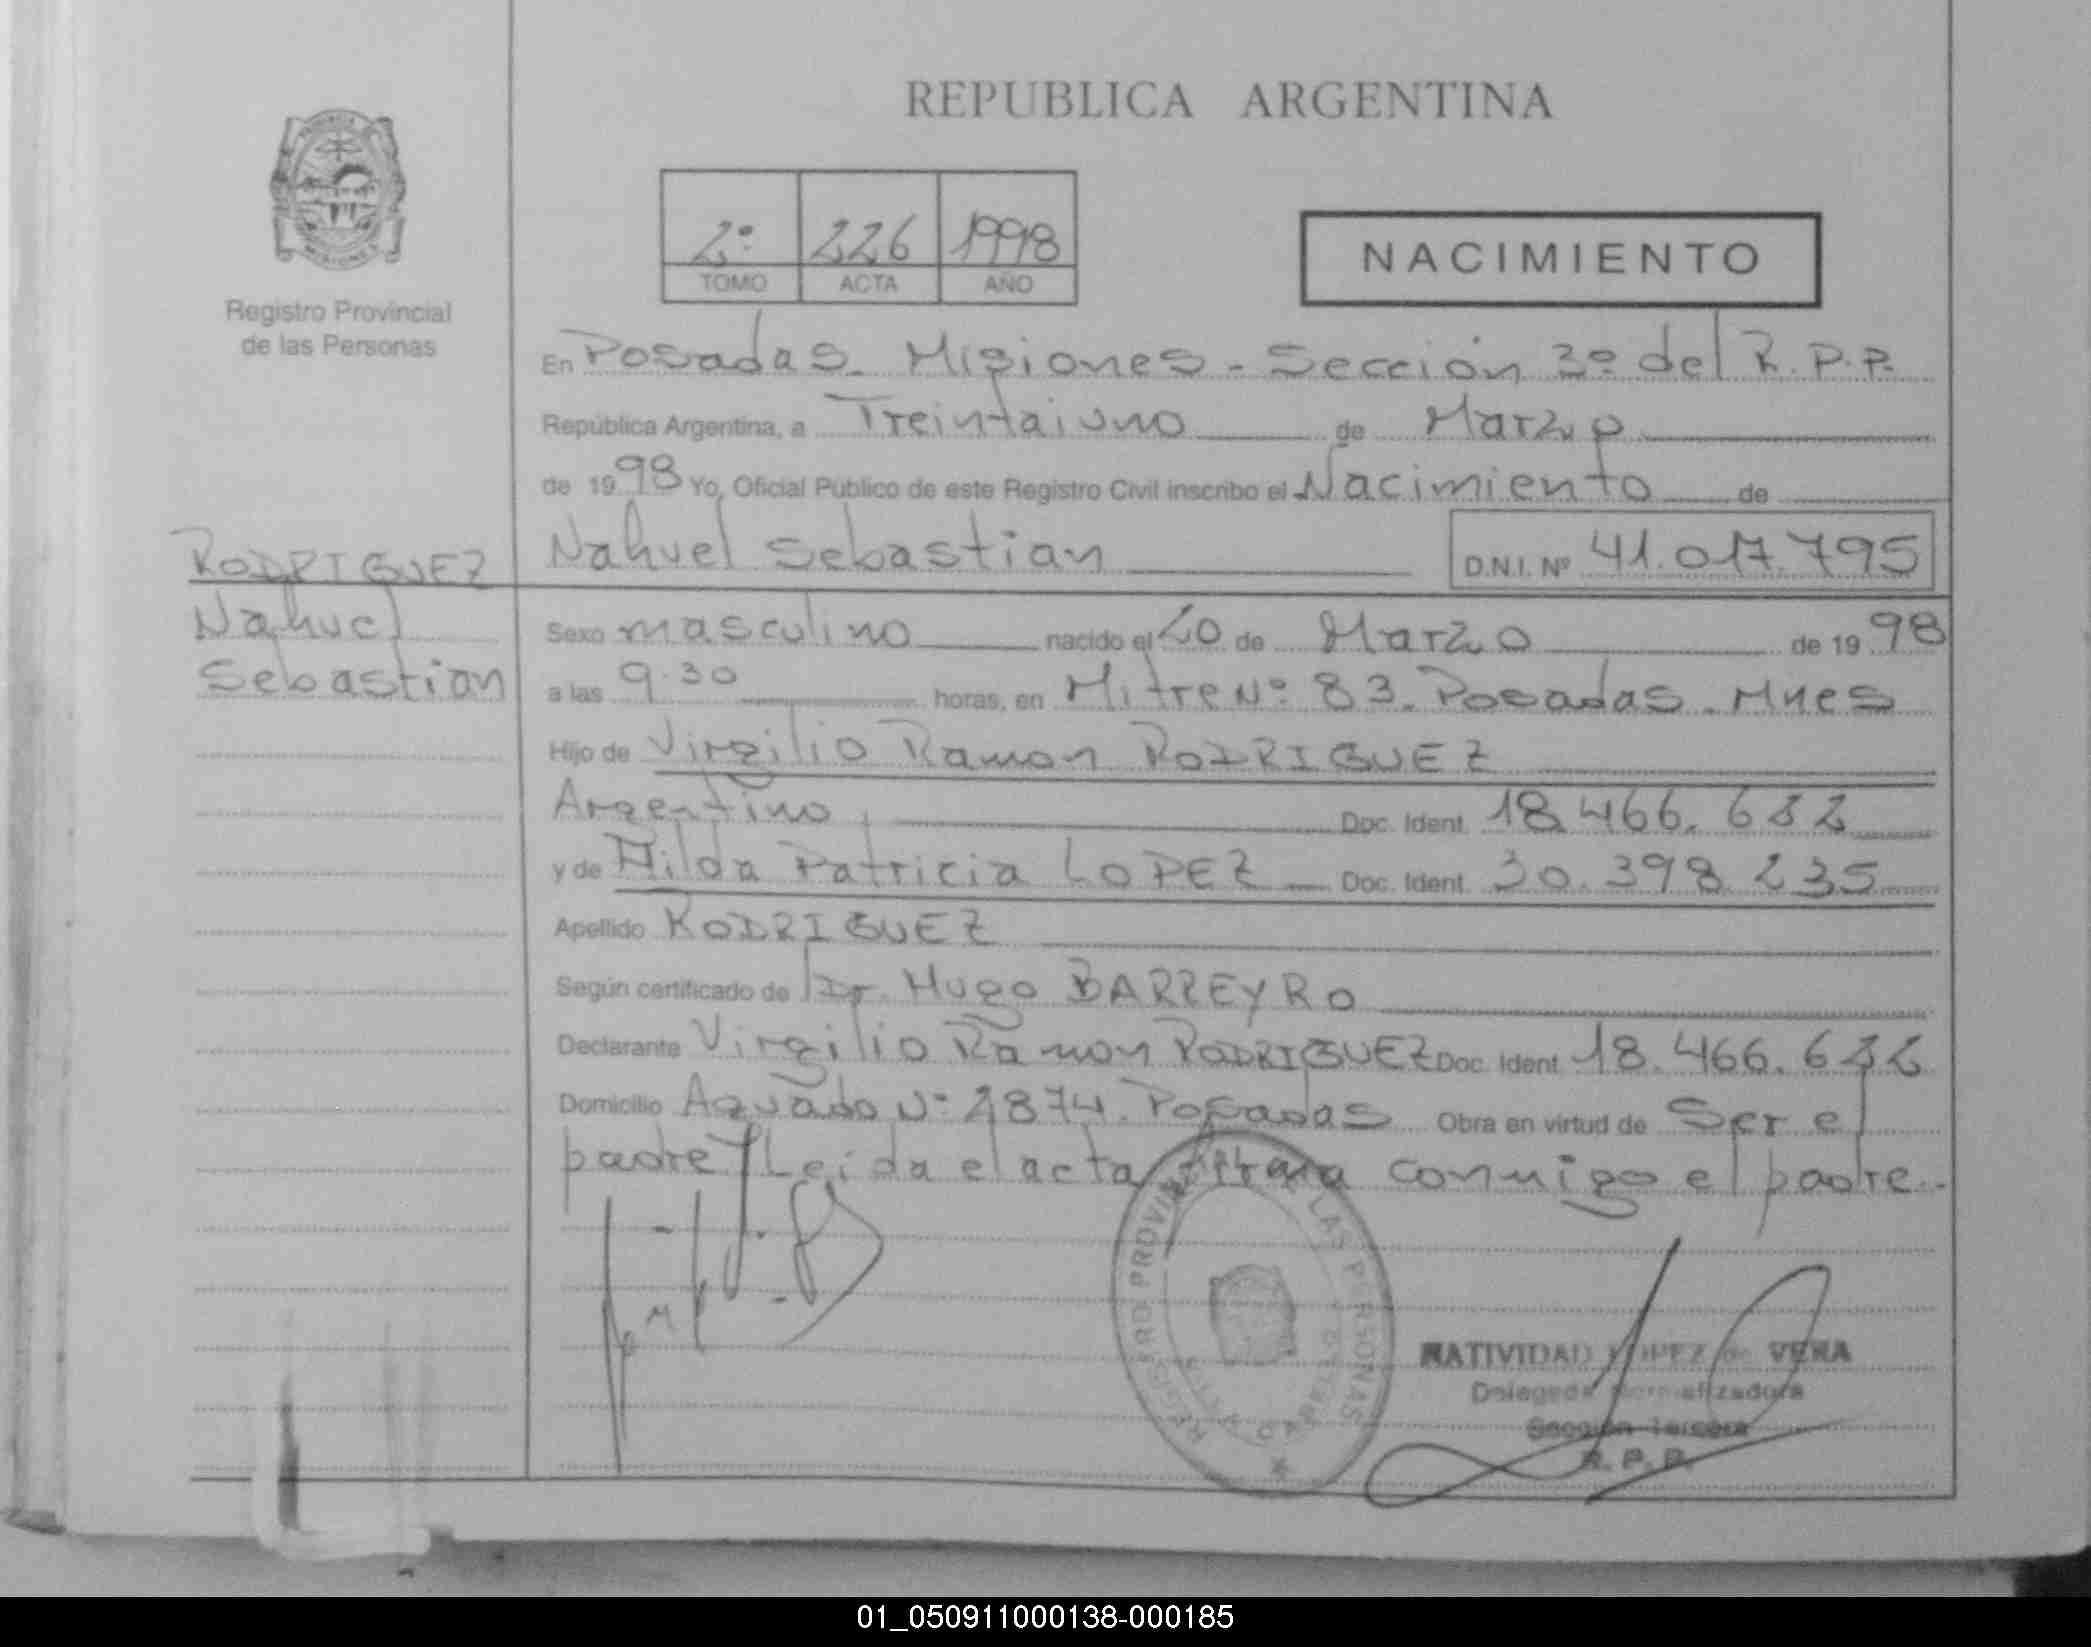 REPUBLICA ARGENTINA
2º 226 1998
TOMO ACTA AÑO
NACIMIENTO
Registro Provincial
de las Personas
En Posadas. Misiones - Sección 3º del R.P.P.
República Argentina, a Treintaiuno de Marzo
de 1998 Yo, Oficial Público de este Registro Civil inscribo el Nacimiento de
Nahuel Sebastian D.N.I. Nº 41.017.795
RODRIGUEZ
Nahuel
Sebastian
Sexo masculino nacido el 20 de Marzo de 1998
a las 9.30 horas, en Mitre Nº 83. Posadas. Mnes
Hijo de Virgilio Ramon RODRIGUEZ
Argentino, Doc. Ident. 18.466.
y de Hilda Patricia LOPEZ Doc. Ident. 30.398.235
Apellido RODRIGUEZ
Según certificado de Dr. Hugo BARREYRO
Declarante Virgilio Ramon RODRIGUEZ Doc. Ident. 18.466.
Domicilio Aguado Nº 2874. Posadas Obra en virtud de Ser el
padre Leida el acta firma conmigo el padre.
REGISTRO PROVINCIAL DE LAS PERSONAS
NATIVIDAD LOPEZ de VERA
Delegada Normalizadora
Sección Tercera
R. P. P.
01_050911000138-000185